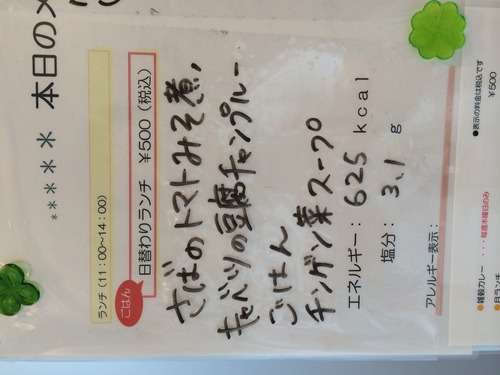 ***** 本日のメ
ランチ（11：00～14：00）
ごはん
日替わりランチ ￥500（税込）
さばのトマトみそ煮、
キャベツの豆腐チャンプルー
ごはん
チンゲン菜スープ
エネルギー： 625 kcal
塩分： 3.1 g
アレルギー表示：
●表示の料金は税込です
￥500
●雑穀カレー ・・・毎週木曜日のみ